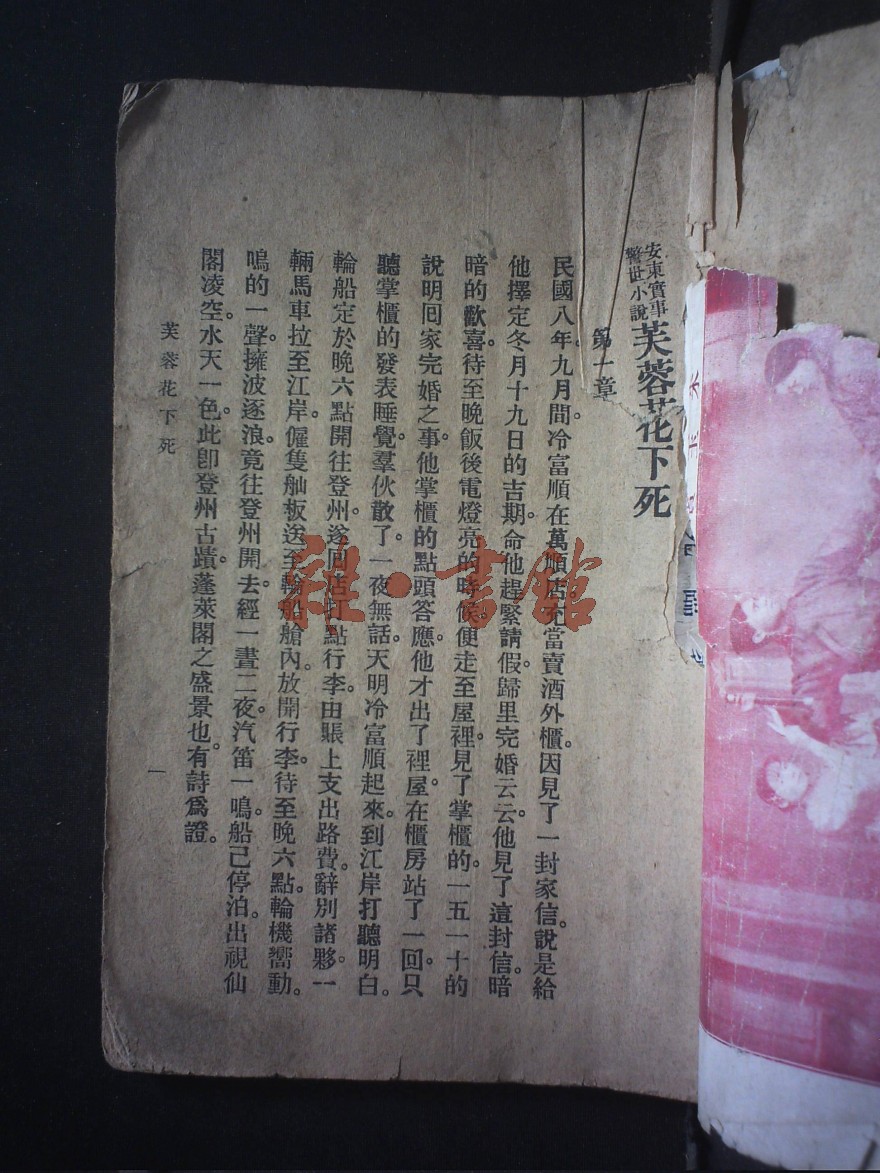 安東實事
警世小說
芙蓉花下死
第一章
民國八年九月間冷富順在萬順店充當賣酒外櫃。因見了一封家信。說是給
他擇定冬月十九日的吉期。命他趕緊請假。歸里完婚云云。他見了這封信。暗
暗的歡喜。待至晚飯後電燈亮的時候。便走至屋裡。見了掌櫃的。一五一十的
說明囘家完婚之事。他掌櫃的點頭答應。他才出了裡屋。在櫃房站了一回。只
聽掌櫃的發表睡覺。羣伙散了。一夜無話。天明冷富順起來。到江岸打聽明白。
輪船定於晚六點開往登州。遂回店打點行李。由賬上支出路費。辭別諸夥。一
輛馬車拉至江岸。僱隻舢板送至輪船艙內。放開行李。待至晚六點。輪機嚮動。
鳴的一聲。擁波逐浪。竟往登州開去。經一晝二夜。汽笛一鳴。船已停泊。出視仙
閣凌空。水天一色。此卽登州古蹟蓬萊閣之盛景也。有詩爲證。
芙蓉花下死
一
雜·書館